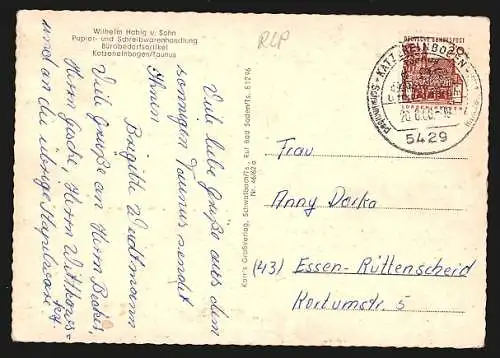 Wilhelm Habig u. Sohn
Papier- und Schreibwarenhandlung
Bürobedarfsartikel
Katzenelnbogen/Taunus
RLP
Viele liebe Grüße aus dem
sonnigen Taunus sendet
Ihnen
Brigitte
Viele Grüße an Herrn Becker,
Herrn
und an die übrige
Karn's Großverlag, Schwalbach/Ts., Ruf Bad Soden/Ts. 81296
Nr. 4662a
DEUTSCHE BUNDESPOST
20
KATZENELNBOGEN
5429
Frau
Anny
(43) Essen-Rüttenscheid
Kortumstr. 5